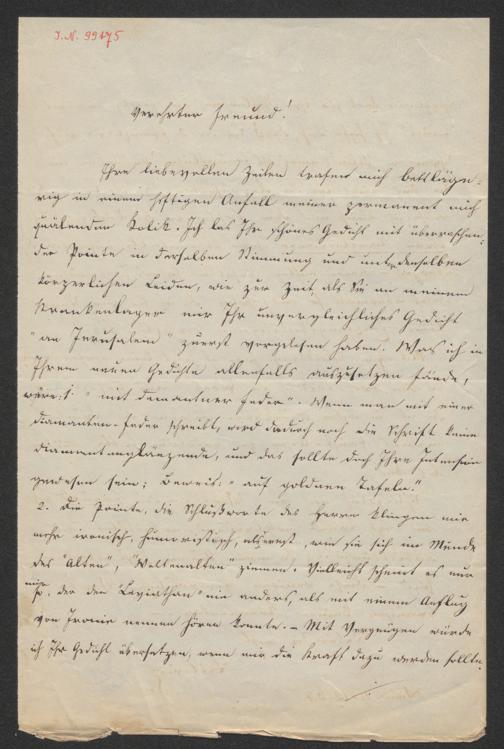 J.N. 99175
Verehrter Freund!
Ihre liebevollen Zeilen trafen mich bettläge-
rig in einem heftigen Anfall meiner permanent mich
quälenden Kolik. Ich las Ihr schönes Gedicht mit überraschen-
der Pointe in derselben Stimmung und unter denselben
körperlichen Leiden, wie zur Zeit, als Sie an meinem
Krankenlager mir Ihr unvergleichliches Gedicht
"an Jerusalem" zuerst vorgelesen haben. Was ich in
Ihrem neuen Gedichte allenfalls auszusetzen fände,
wäre: 1. "mit demantner Feder". Wenn man mit einer
diamanten-Feder schreibt, wird dadurch noch die Schrift keine
diamantenglänzende, und das sollte doch Ihre Intention
gewesen sein; Beweis: "auf goldnen Tafeln".
2. Die Pointe, die Schlußworte des Herrn klingen mir
mehr ironisch, humoristisch, als ernst, wie sie sich im Munde
des "Alten", "Weltenalten" ziemen. Vielleicht scheint es nur
mir so, der den Leviathan nie anders, als mit einem Anflug
von Ironie nennen hören konnte. – Mit Vergnügen würde
ich Ihr Gedicht übersetzen, wenn mir die Kraft dazu werden sollte.